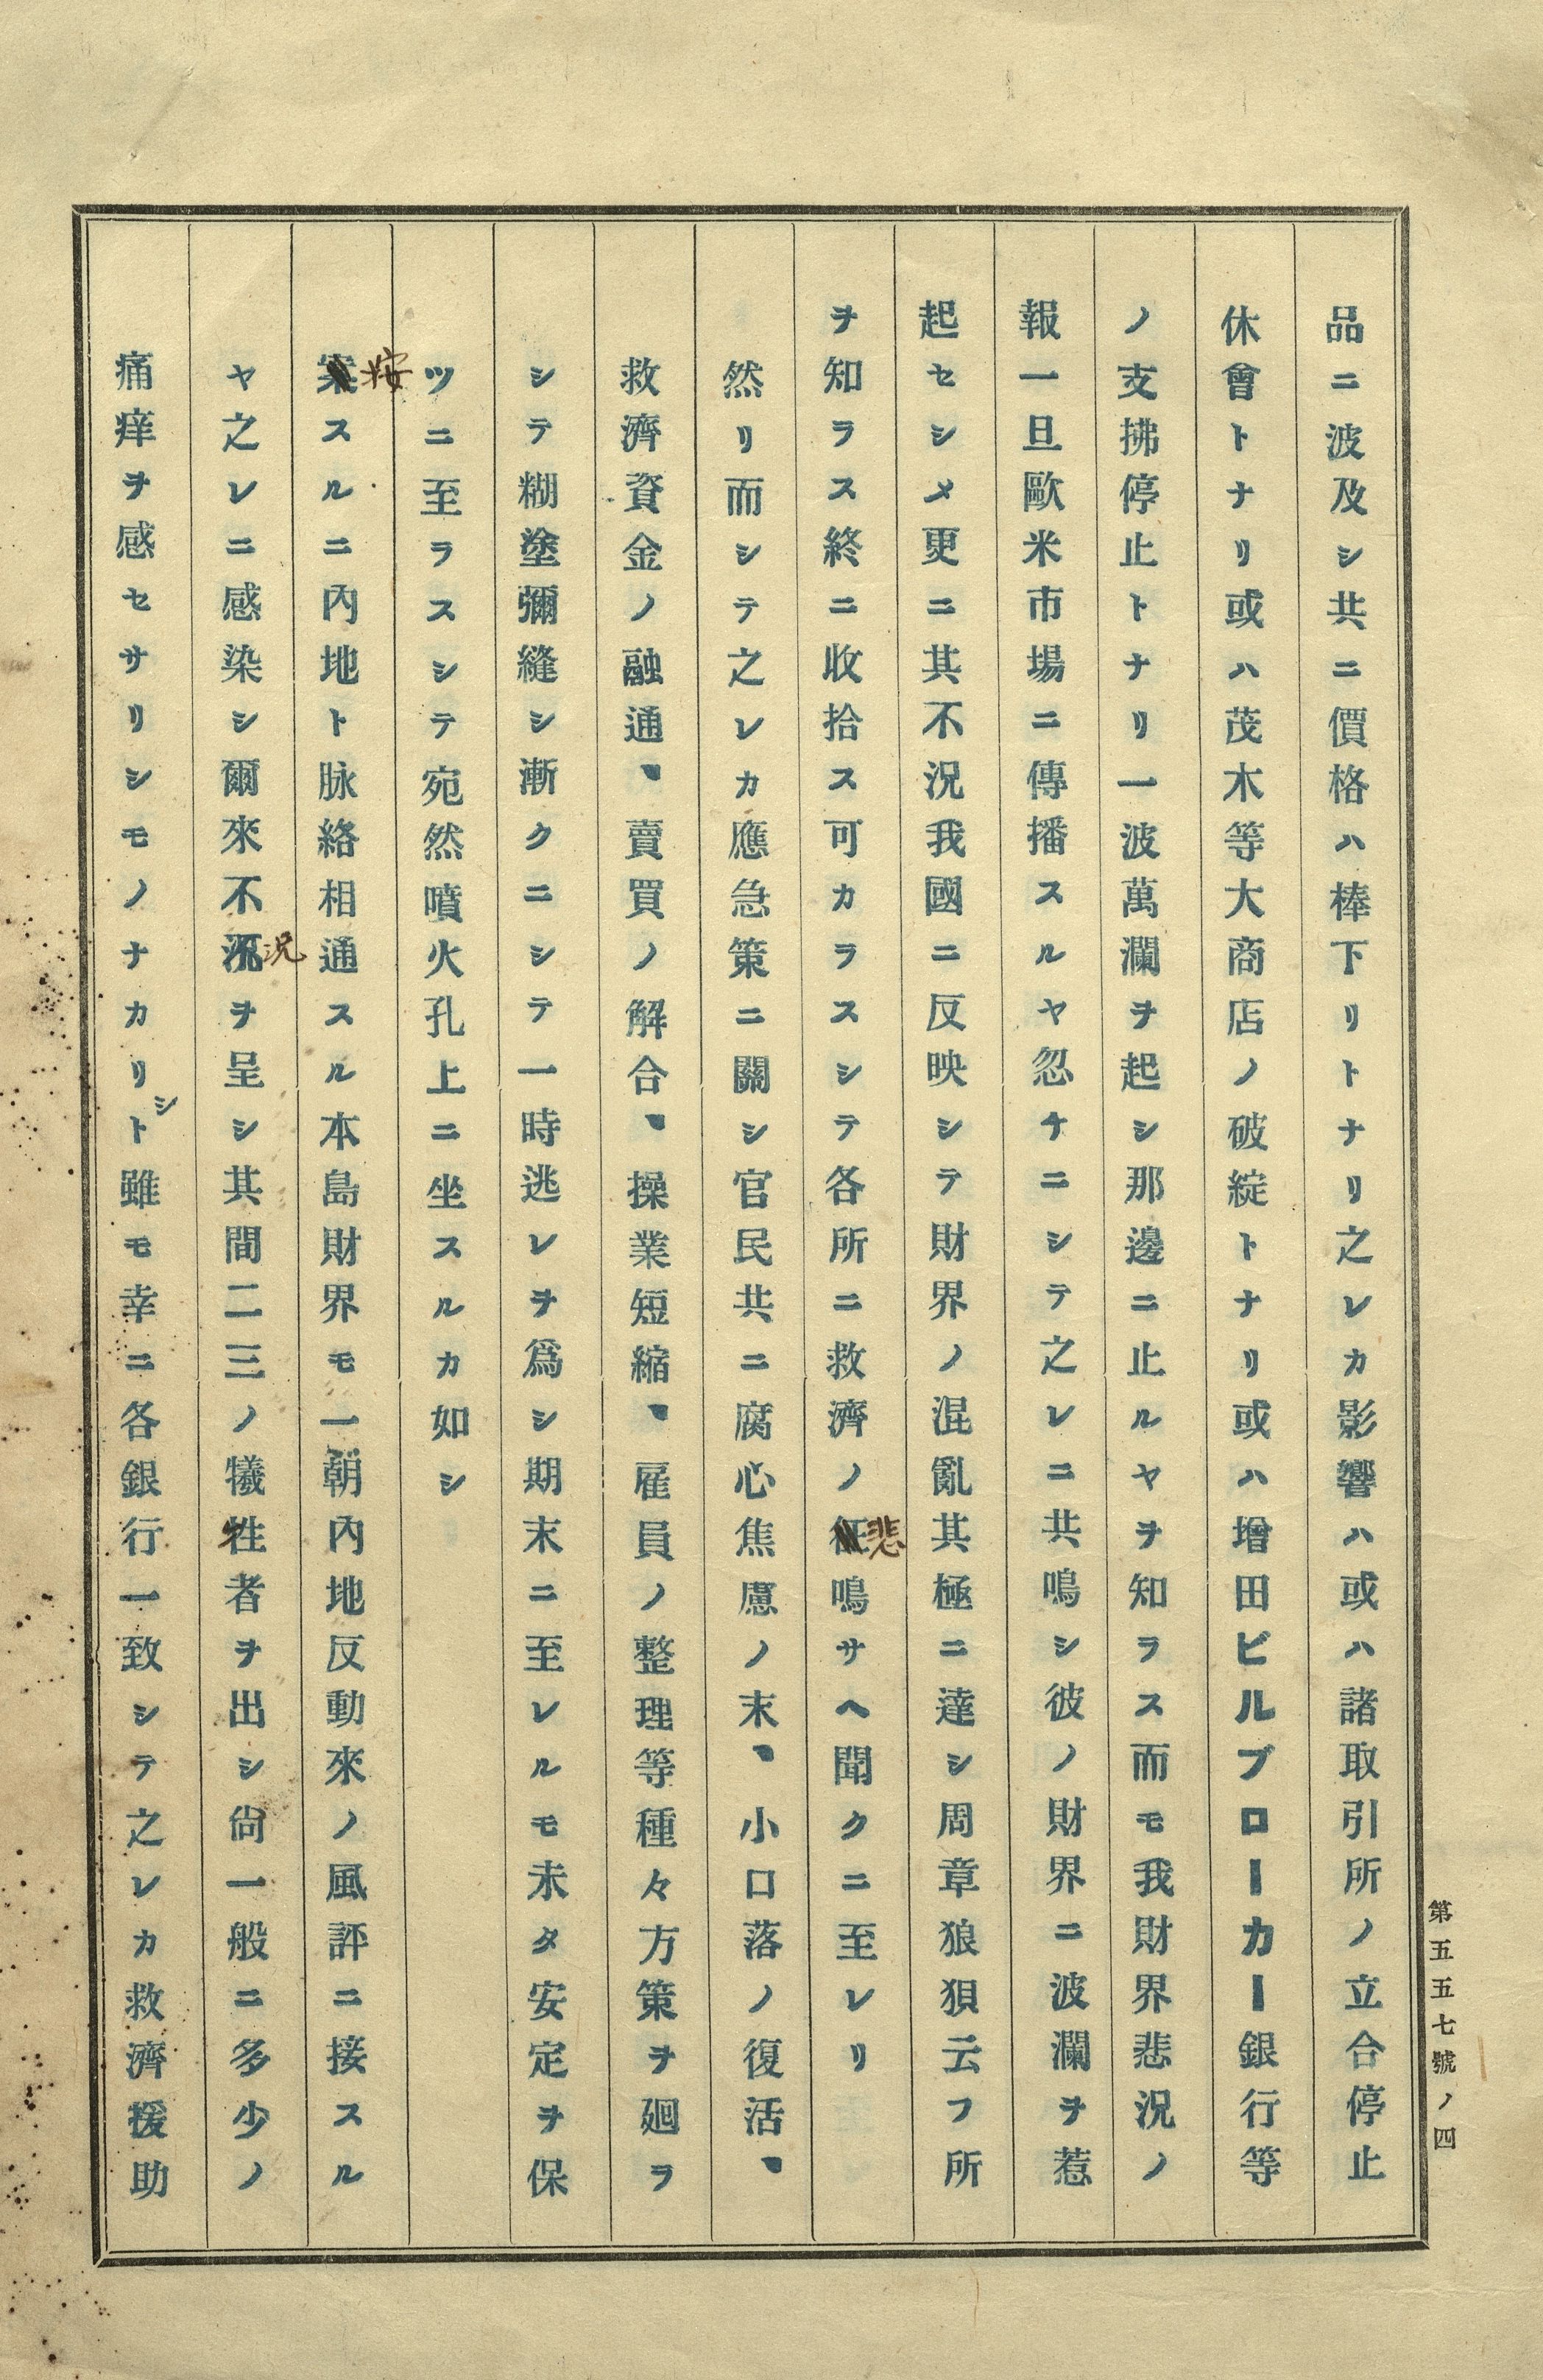 品ニ波及シ共ニ價格ハ棒下リトナリ之レカ影響ハ或ハ諸取引所ノ立合停止
休會トナリ或ハ茂木等大商店ノ破綻トナリ或ハ增田ビルブローカー銀行等
ノ支拂停止トナリ一波萬瀾ヲ起シ那邊ニ止ルヤヲ知ラス而モ我財界悲況ノ
報一旦歐米市場ニ傳播スルヤ忽チニシテ之レニ共鳴シ彼ノ財界ニ波瀾ヲ惹
起セシメ更ニ其不況我國ニ反映シテ財界ノ混亂其極ニ達シ周章狼狽云フ所
ヲ知ラス終ニ收拾ス可カラスシテ各所ニ救濟ノ悲鳴サヘ聞クニ至レリ
然リ而シテ之レカ應急策ニ關シ官民共ニ腐心焦慮ノ末、小口落ノ復活、
救濟資金ノ融通、賣買ノ解合、操業短縮、雇員ノ整理等種々方策ヲ廻ラ
シテ糊塗彌縫シ漸クニシテ一時逃レヲ爲シ期末ニ至レルモ未タ安定ヲ保
ツニ至ラスシテ宛然噴火孔上ニ坐スルカ如シ
按スルニ內地ト脉絡相通スル本島財界モ一朝內地反動來ノ風評ニ接スル
ヤ之レニ感染シ爾來不況ヲ呈シ其間二三ノ犧牲者ヲ出シ尙一般ニ多少ノ
痛痒ヲ感セサリシモノナカリシト雖モ幸ニ各銀行一致シテ之レカ救濟援助
第五五七號ノ四